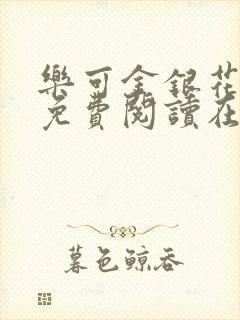 樂可金銀花
免費閱讀在
暮色鯨吞